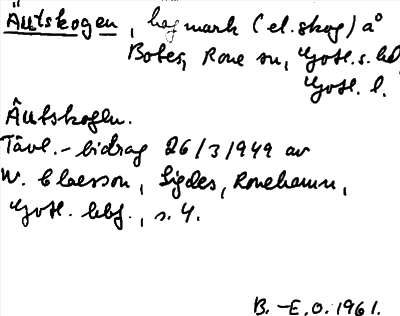 Äutskogen, hagmark (el. skog) å
Botes, Rone sn, Gotl. s. hd
Gotl. l.
Äutskogen.
Tävl.-bidrag 26/3 1949 av
W. Claesson, Sigdes, Ronehamn,
Gotl. , s. 4.
B. -E. O. 1961.